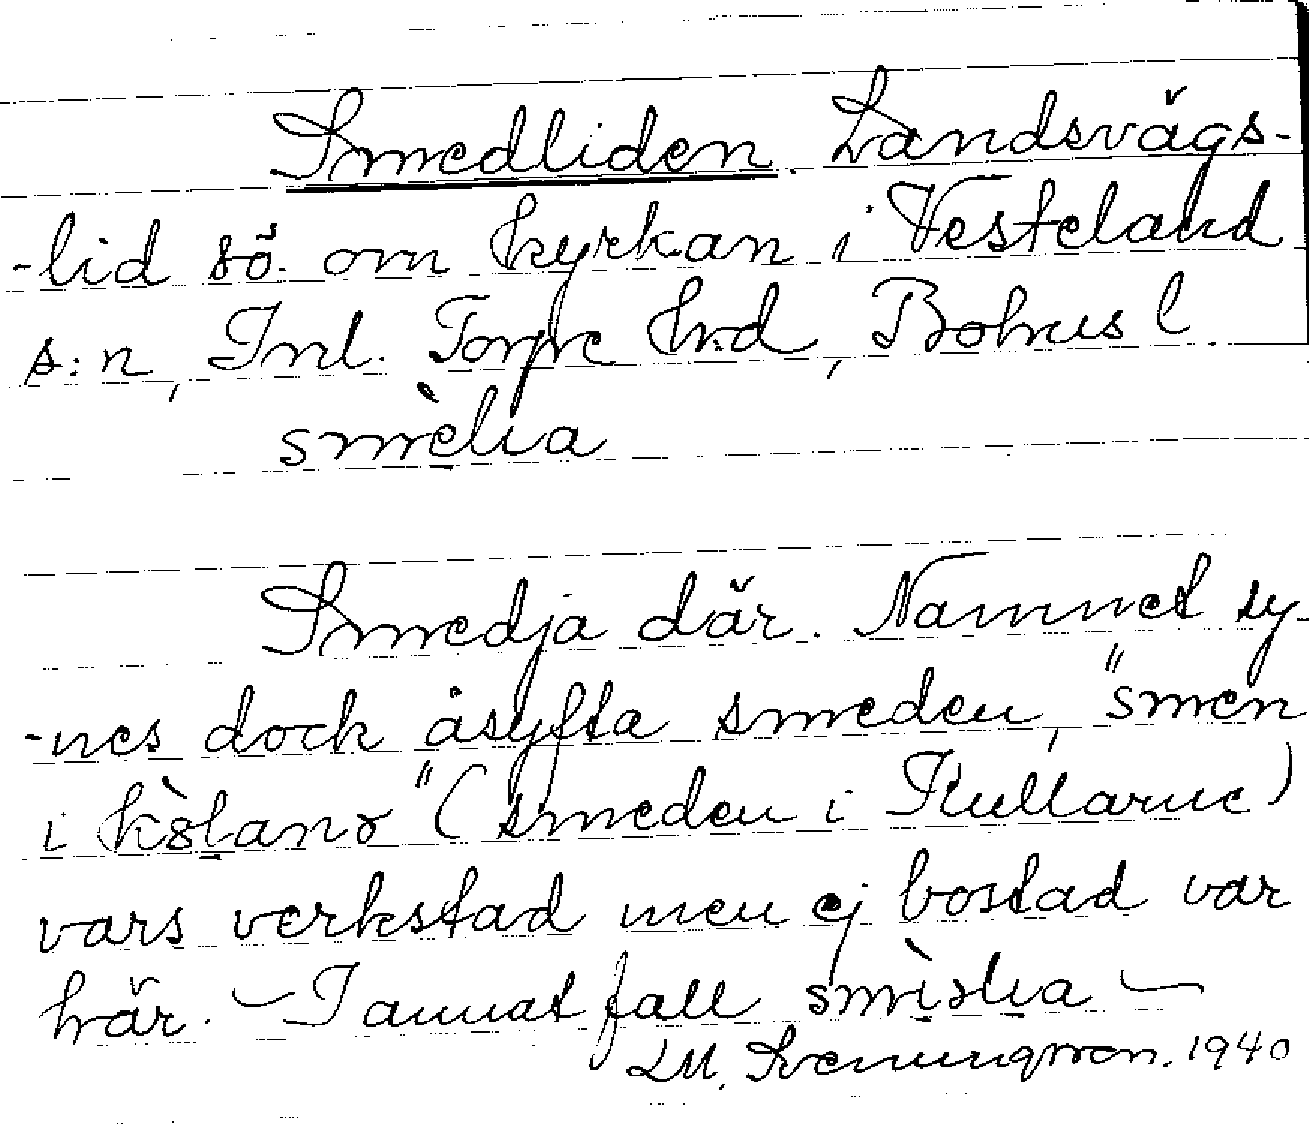 Smedliden Landsvägs-
-lid sö. om kyrkan i Vesteland
s:n, Inl. Torpe hrd, Bohusl.
smèlia
Smedja där. Namnet sy-
-nes dock åsyfta smeden, "smén
i
" (smeden i Kullarne)
vars verkstad men ej bostad var
här. – I annat fall –
LM. 1940